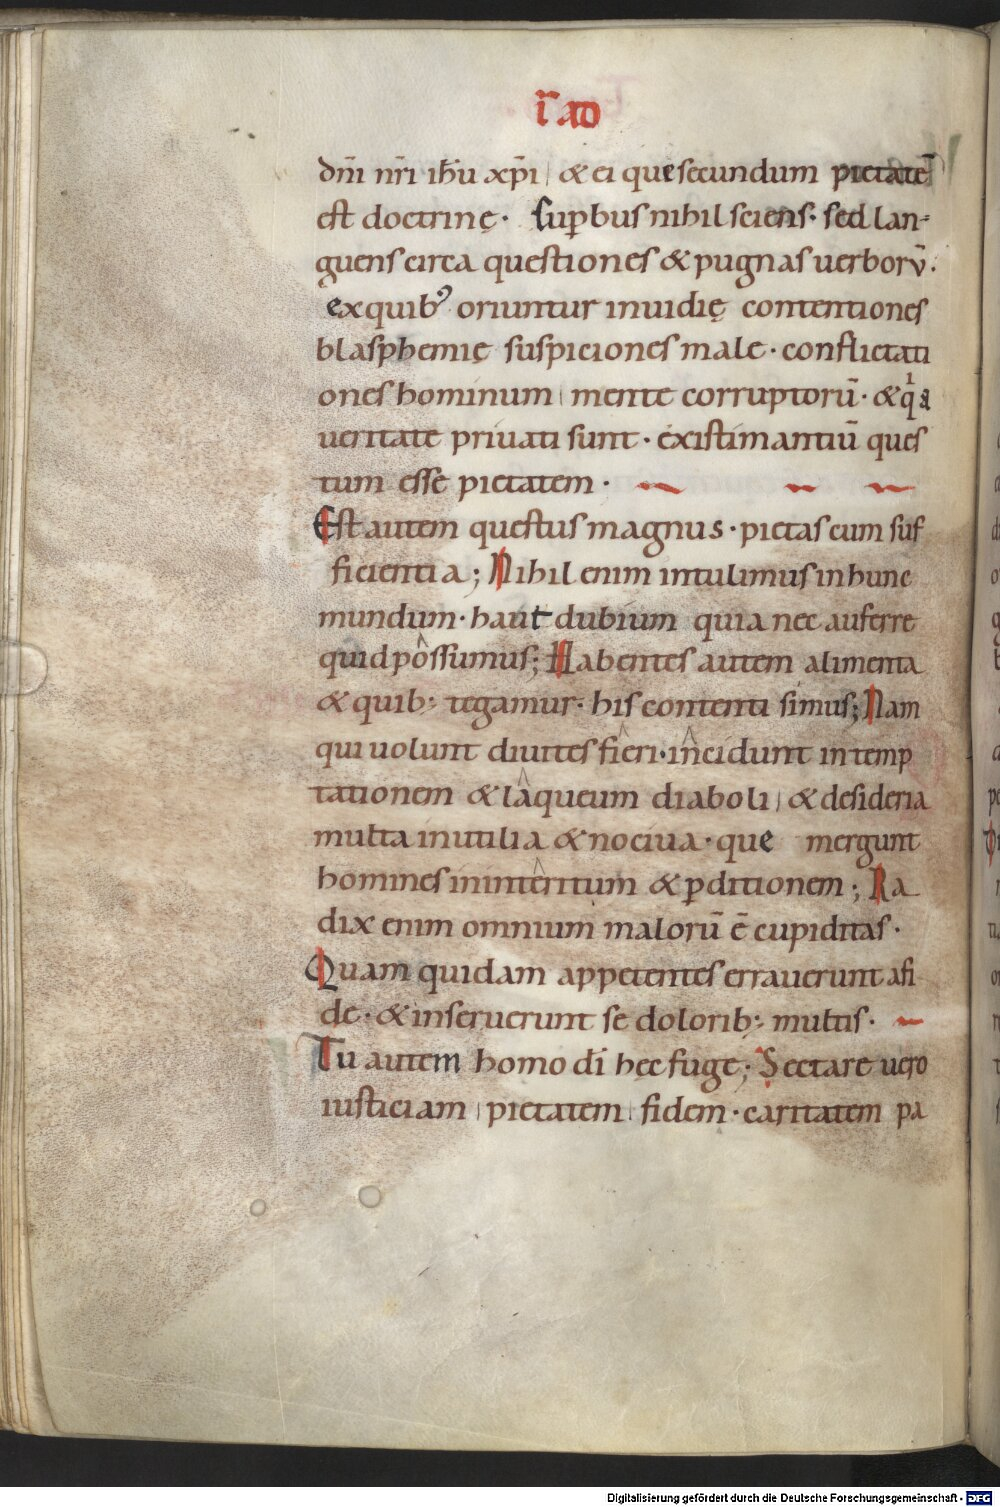 i̅ ad
dm̅i nr̅i ihu̅ xp̅i & ei que secundum pietate̅
est doctrinę · Supbus nihil sciens · sed lan-
guens circa questiones & pugnas uerboru̅ .
ex quib᾿ oriuntur inuidię contentiones
blasphemię suspiciones male · conflictati
ones hominum mente corruptoru̅ · & qia
ueritate priuati sunt · existimantiu̅ ques
tum esse pietatem ·
Est autem questus magnus · pietas cum suf
ficientia ; Nihil enim intulimus in hunc
mundum · haut dubium quia nec auferre
quid possumus ; Habentes autem alimenta
& quib: tegamur · his contenti simus ; Nam
qui uolunt diuites fieri · incidunt in temp
tationem & laqueum diaboli & desideria
multa inutilia & nociua · que mergunt
homines in interitum & pditionem ; Ra
dix enim omnium maloru̅ e̅ cupiditas ·
Quam quidam appetentes errauerunt a fi
de · & inseruerunt se dolorib: multis ·
Tu autem homo di̅ hęc fuge ; Sectare uero
iusticiam pietatem fidem · caritatem pa
Digitalisierung gefördert durch die Deutsche Forschungsgemeinschaft - DFG